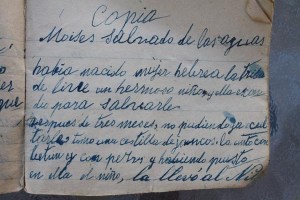 Copia
Moises salvado de las aguas
había nacido mujer hebrea la tribu
de un hermoso niño y ella escon
dio para salvarle
despues de tres meses, no pudiendo ya ocul
tarlo tomo una cestilla de juncos la unto con
betun y con pez y habiendo puesto
en ella el niño, la llevó al
que